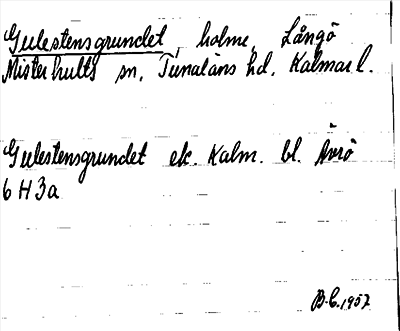 Gulestensgrundet, holme, Långö
Misterhults sn, Tunaläns hd, Kalmar l.
Gulestensgrundet ek. Kalm. bl. Ävrö
6 H 3 a
B.C. 1957